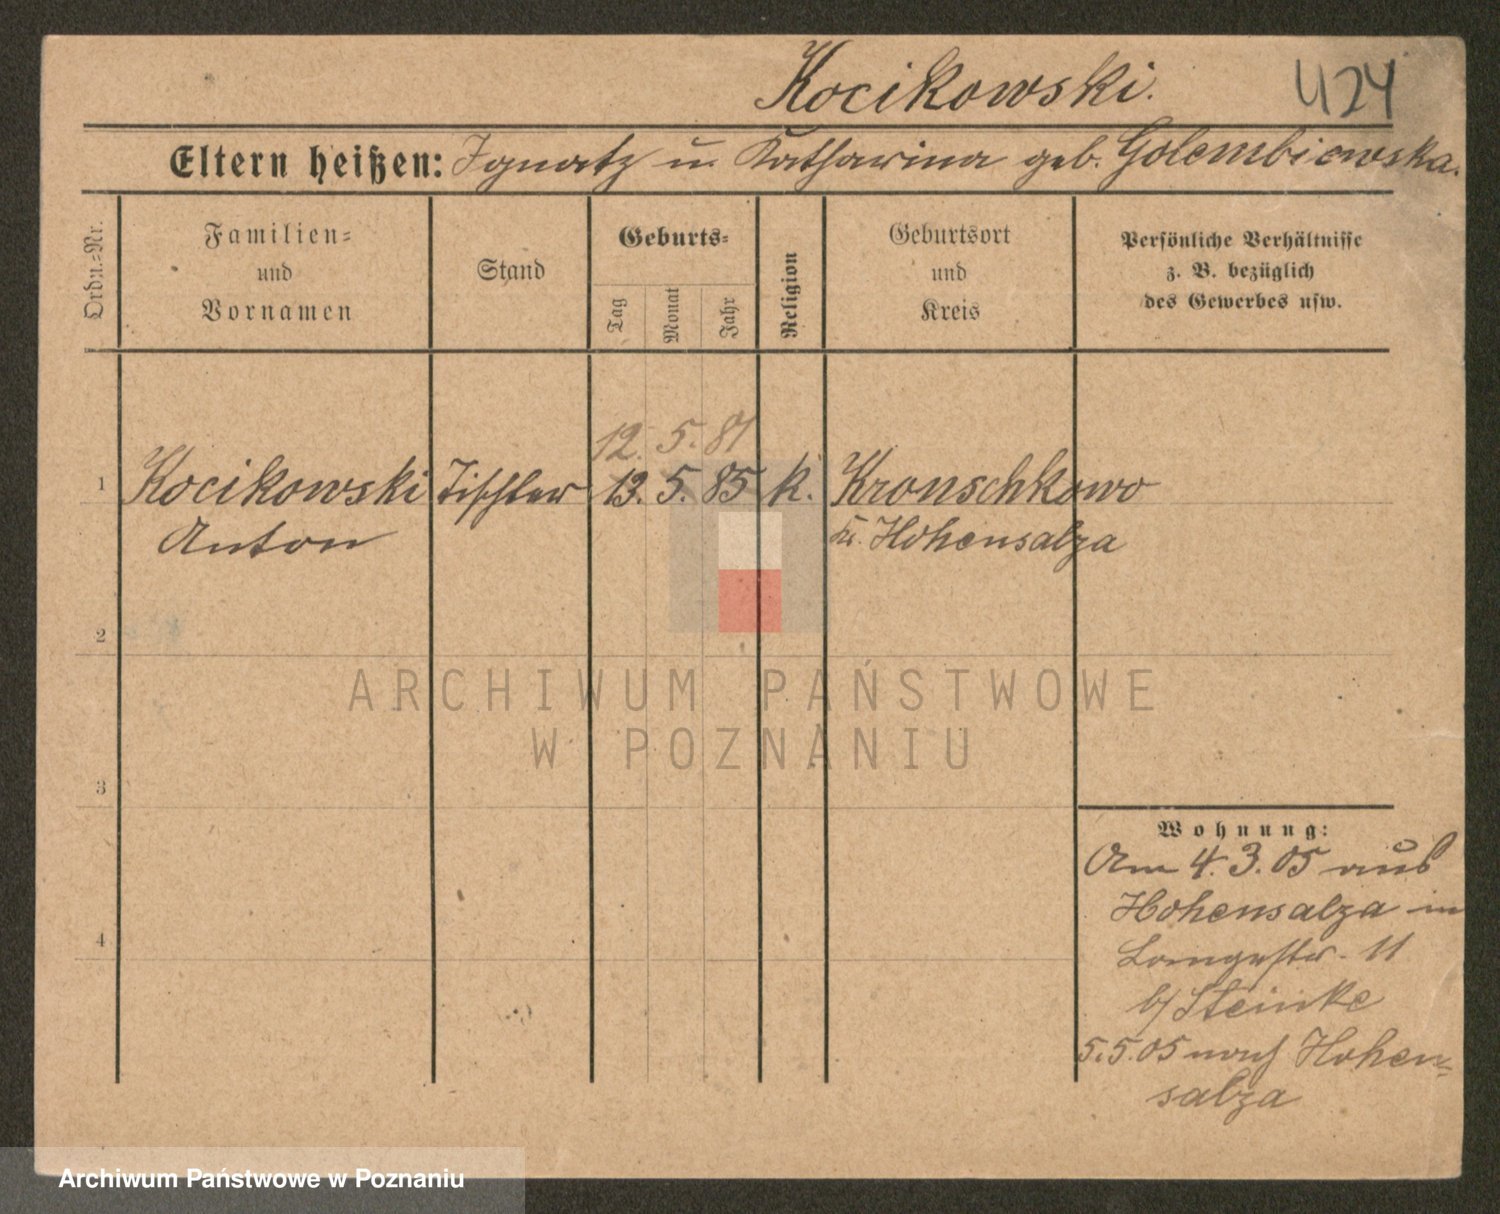 Kocikowski. 424
Eltern heißen: Ignatz u. Katharina geb. Golembiewska.
Ordn.-Nr.
Familien-
und
Vornamen
Stand
Geburts-
Tag
Monat
Jahr
Religion
Geburtsort
und
Kreis
Persönliche Verhältnisse
z. B. bezüglich
des Gewerbes usw.
12. 5. 81
1 Kocikowski Tischler 13. 5. 85 k. Kronschkowo
Anton Kr. Hohensalza
2
3
4
Wohnung:
Am 4.3.05 aus
Hohensalza in
Langestr. 11
b/ Steinke
5.5.05 nach Hohen-
salza
ARCHIWUM PAŃSTWOWE
W POZNANIU
Archiwum Państwowe w Poznaniu